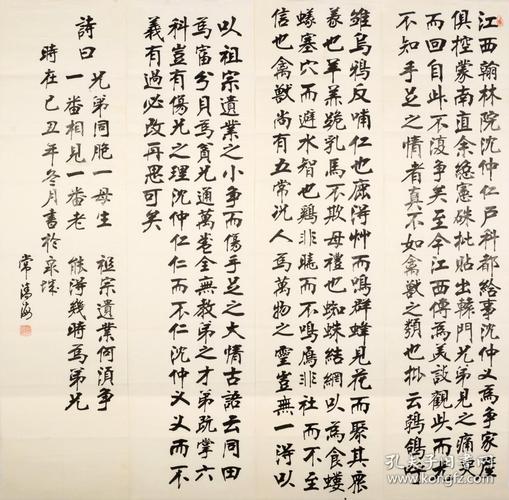 江西翰林院沈仲仁户科都給事沈仲义為争家產
俱控蒙南直余總憲硃批貼出轅門兄弟見之痛哭
而回自此不復争矣至今江西傳為美談觀此而尤
不知手足之情者真不如禽獸之類也批云鵓鴿呼
雛烏鴉反哺仁也鹿得艸而鳴群蜂見花而聚其衆
義也羊羔跪乳馬不欺母禮也蜘蛛結網以為食螻
蟻塞穴而避水智也鷄非曉而不鳴鴈非社而不至
信也禽獸尚有五常况人為萬物之靈豈無一得以
以祖宗遺業之小争而傷手足之大情古語云同田
為富分貝為貧兄通萬卷全無教弟之才弟掌六
科豈有傷兄之理沈仲仁仁而不仁沈仲义义而不
義有過必改再思可矣
詩曰 兄弟同胞一母生 祖宗遺業何須争
一番相見一番老 能得幾時為弟兄
時在己丑年冬月書於泉城
常海
孔夫子旧书网